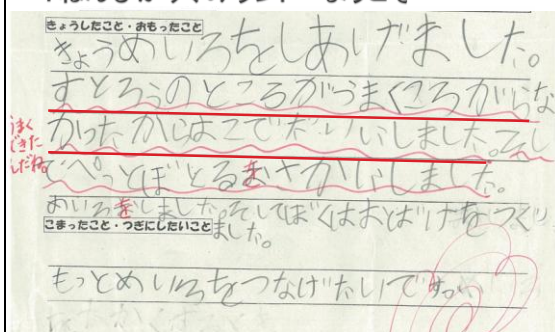 きょうしたこと・おもったこと
きょうめいろをしあげました。
すとろうのところがうまくころがらな
かったからよこでだいいしました。そし
てぺっとぼとるまさかいしました。
めいろをしました。そしてぼくはおとばけをつくり
ました。
うまく
できた
んだね
こまったこと・つぎにしたいこと
もっとめいろをつなげたいです